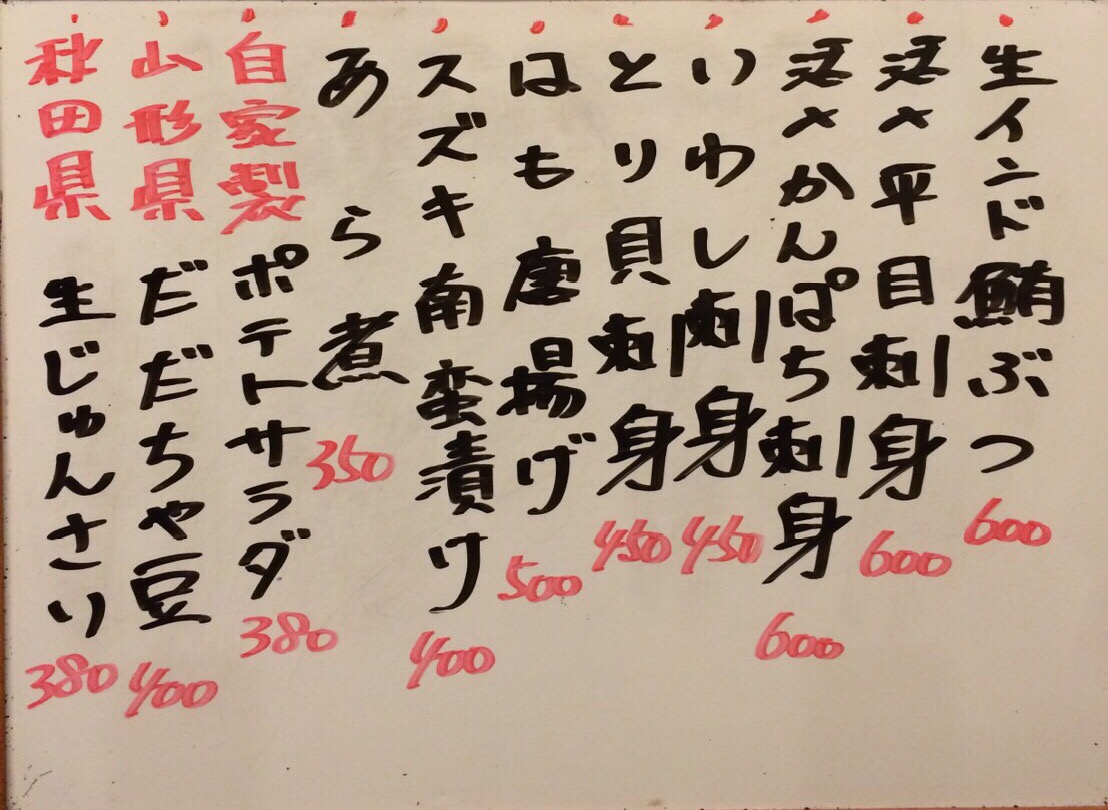 生インド鮪ぶつ 600
活〆平目刺身 600
活〆かんぱち刺身 600
いわし刺身 450
とり貝刺身 450
はも唐揚げ 500
スズキ南蛮漬け 400
あら煮 350
自家製ポテトサラダ 380
山形県だだちゃ豆 400
秋田県生じゅんさい 380